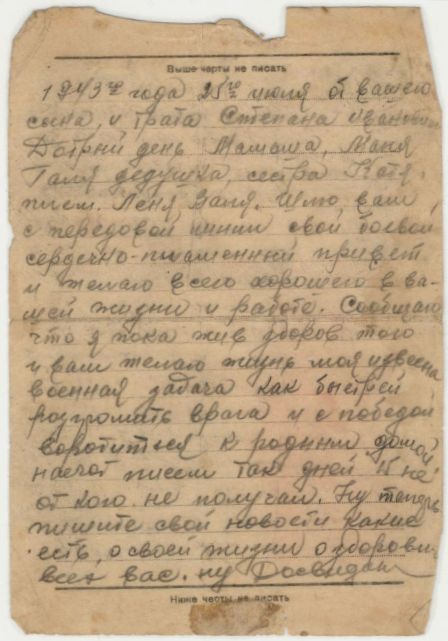 Выше черты не писать
1943го года 25го июля от вашего
сына, и брата Степана Ивановича
Добрий день Мамаша, Маня
Галя дедушка, сестра Катя,
плем. Леня, Валя. Шлю вам
с передовой линии свой боевой
сердечно-пламенний привет
и желаю всего хорошего в ва-
шей жизни и работе. Сообщаю
что я пока жив здоров того
и вам желаю жизнь моя известна
военная задача как быстрей
розгромать врага и с победой
воротиться к родным домой
насчот писем так дней 15 не
от кого не получал. Ну теперь
пишите свои новости какие
есть, о своей жизни о здоровьи
всех вас. ну Досвидан
Ниже черты не писать